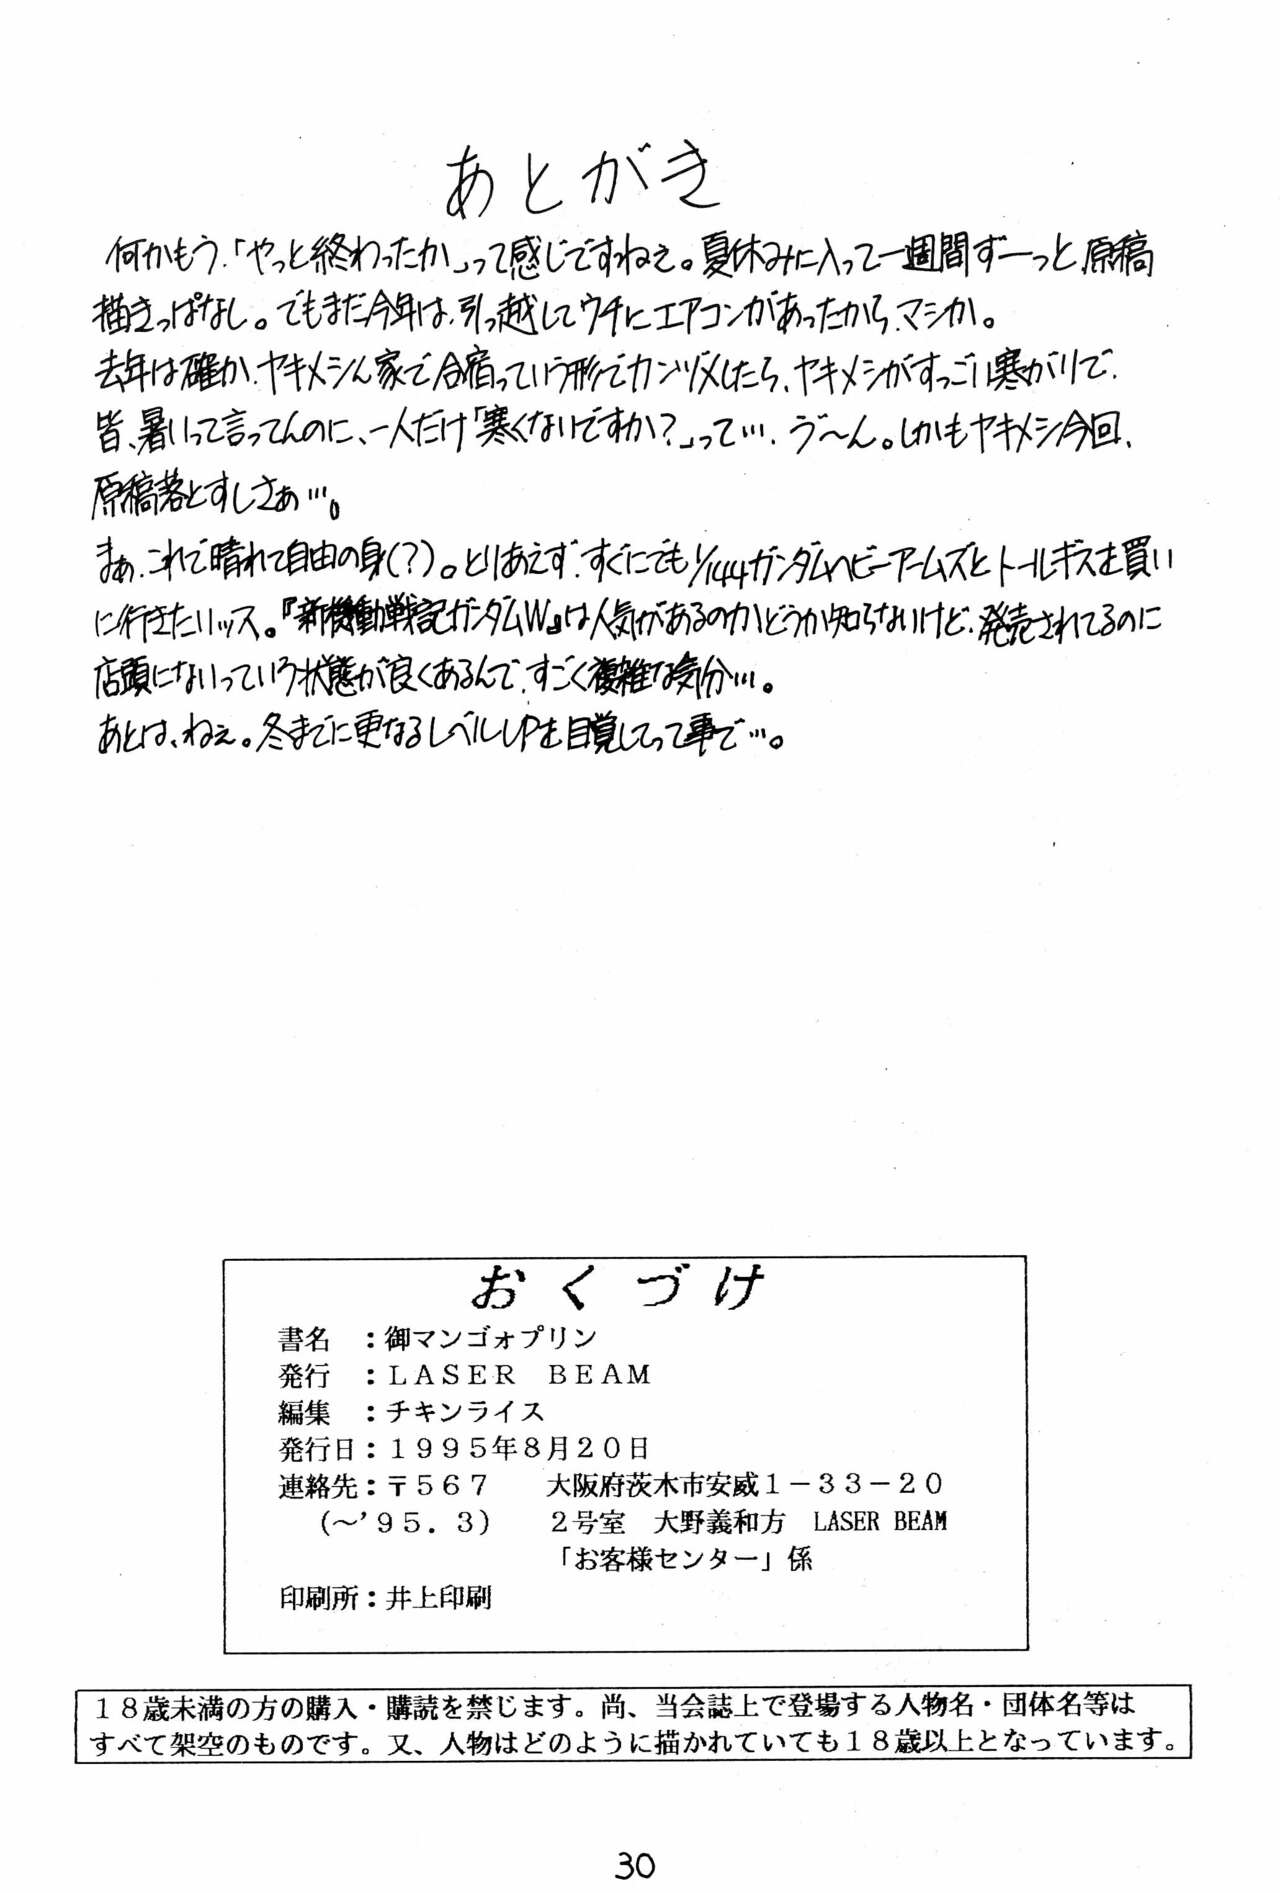 あとがき
何かもう、「やっと終わったか」って感じですねぇ。夏休みに入って一週間ずーっと、原稿
描きっぱなし。でもまだ今年は、引っ越してウチにエアコンがあったから、マシか。
去年は確か、ヤキメシん家で合宿っていう形でカンヅメしたら、ヤキメシがすっごい寒がりで、
皆、暑いって言ってんのに、一人だけ「寒くないですか?」って…、う゛〜ん。しかもヤキメシ今回、
原稿落とすしさぁ…。
まぁ、これで晴れて自由の身(?)。とりあえず、すぐにでも1/144ガンダムヘビーアームズとトールギスを買い
に行きたいッス。『新機動戦記ガンダムW』は人気があるのかどうか知らないけど、発売されてるのに
店頭にないっていう状態が良くあるんで、すごく複雑な気分…。
あとは、ねぇ。冬までに更なるレベルUPを目覚してって事で…。
おくづけ
書名　:御マンゴォプリン
発行　:LASER　BEAM
編集　:チキンライス
発行日:1995年8月20日
連絡先:〒567　大阪府茨木市安威1-33-20
(〜'95.3)　2号室　大野義和方　LASER BEAM
「お客様センター」係
印刷所:井上印刷
18歳未満の方の購入・購読を禁じます。尚、当会誌上で登場する人物名・団体名等は
すべて架空のものです。又、人物はどのように描かれていても18歳以上となっています。
30